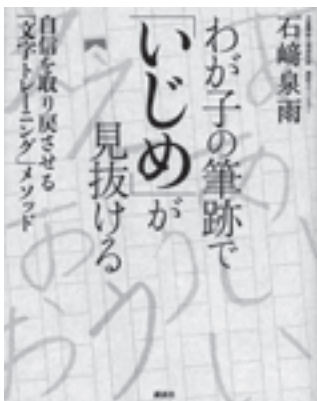 石﨑泉雨
わが子の筆跡で
「いじめ」が
見抜ける
自信を取り戻させる
「文字トレーニング」メソッド
講談社